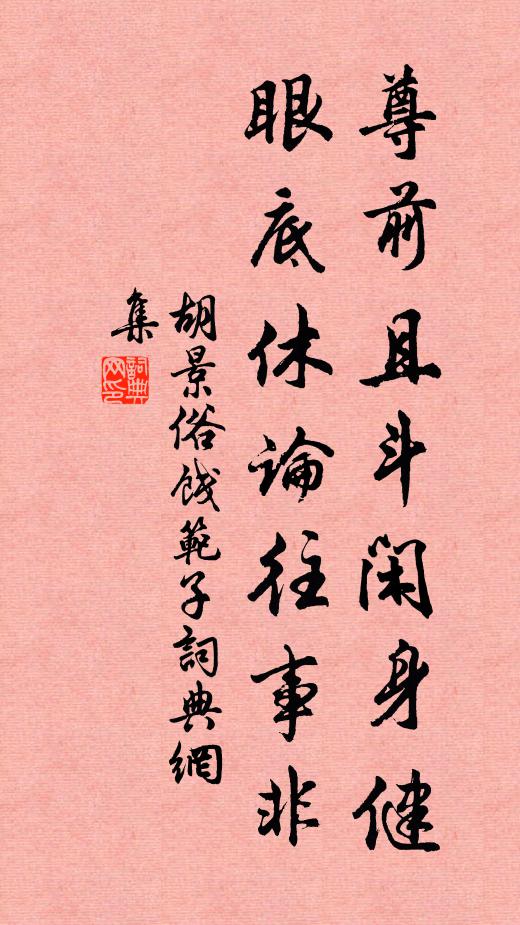 尊前且斗闲身健
眼底休論往事非
胡景俗餞範子詞典網
集
詞典
网印